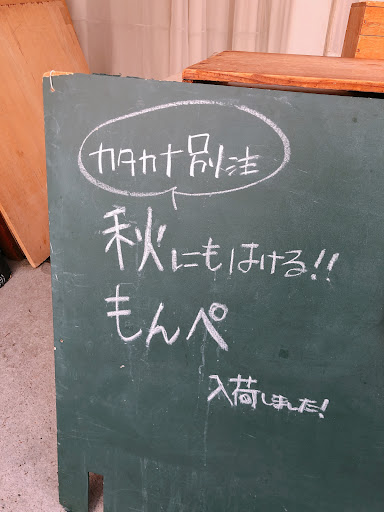 カタカナ別注
秋にもはける!!
もんペ
入荷しました!